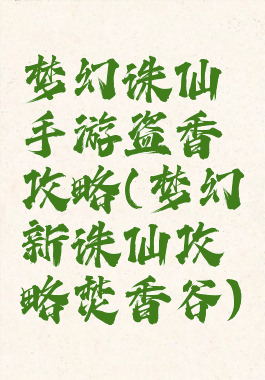 梦幻诛仙
手游盗香
攻略(梦幻
新诛仙攻
略焚香谷)